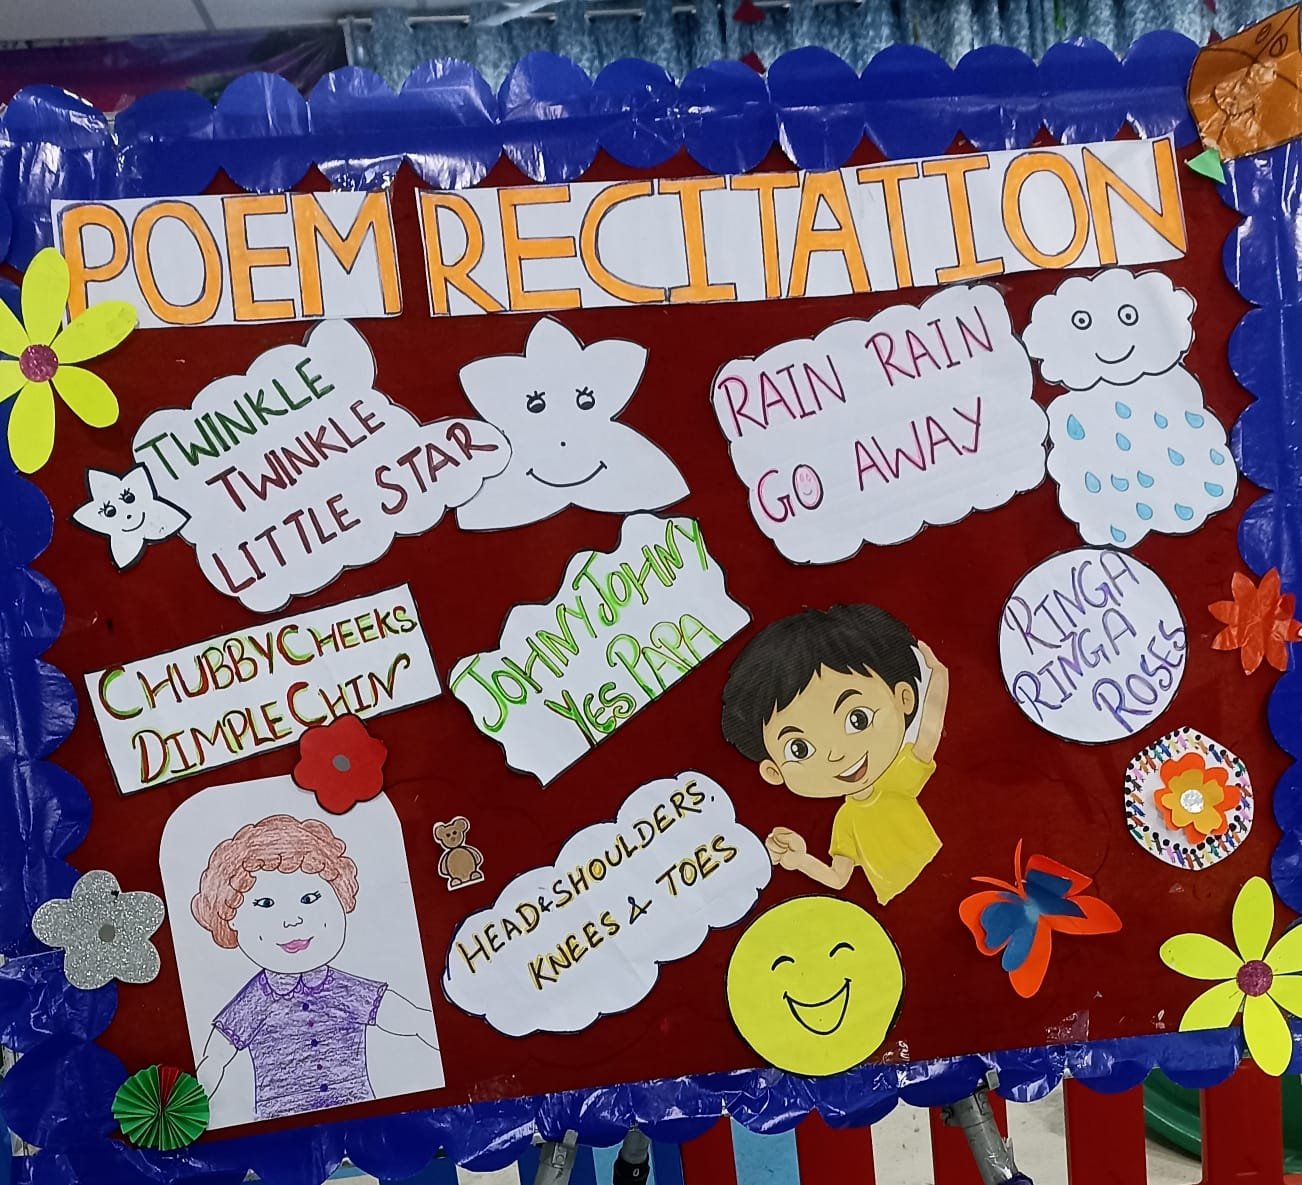 POEM RECITATION
TWINKLE
TWINKLE
LITTLE STAR
RAIN RAIN
GO AWAY
CHUBBY CHEEKS
DIMPLE CHIN
JOHNY JOHNY
YES PAPA
RINGA
RINGA
ROSES
HEAD & SHOULDERS,
KNEES & TOES